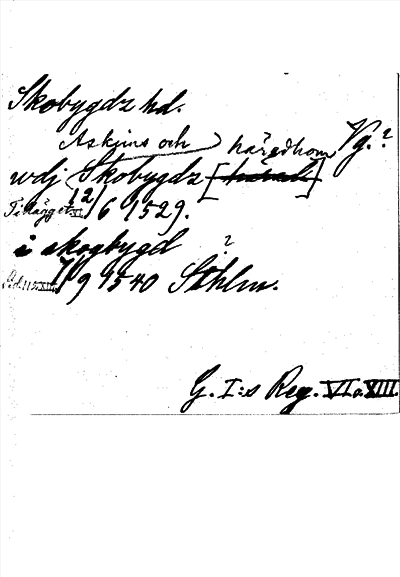 Skobygdz hd.
Vg.?
Askjms och häradhom
wdj Skobygdz [härad]
Tillägget VI 12/6 1529.
i skogbygd ?
7/9 1540 Sthlm.
G. I:s Reg. VI o. XIII.